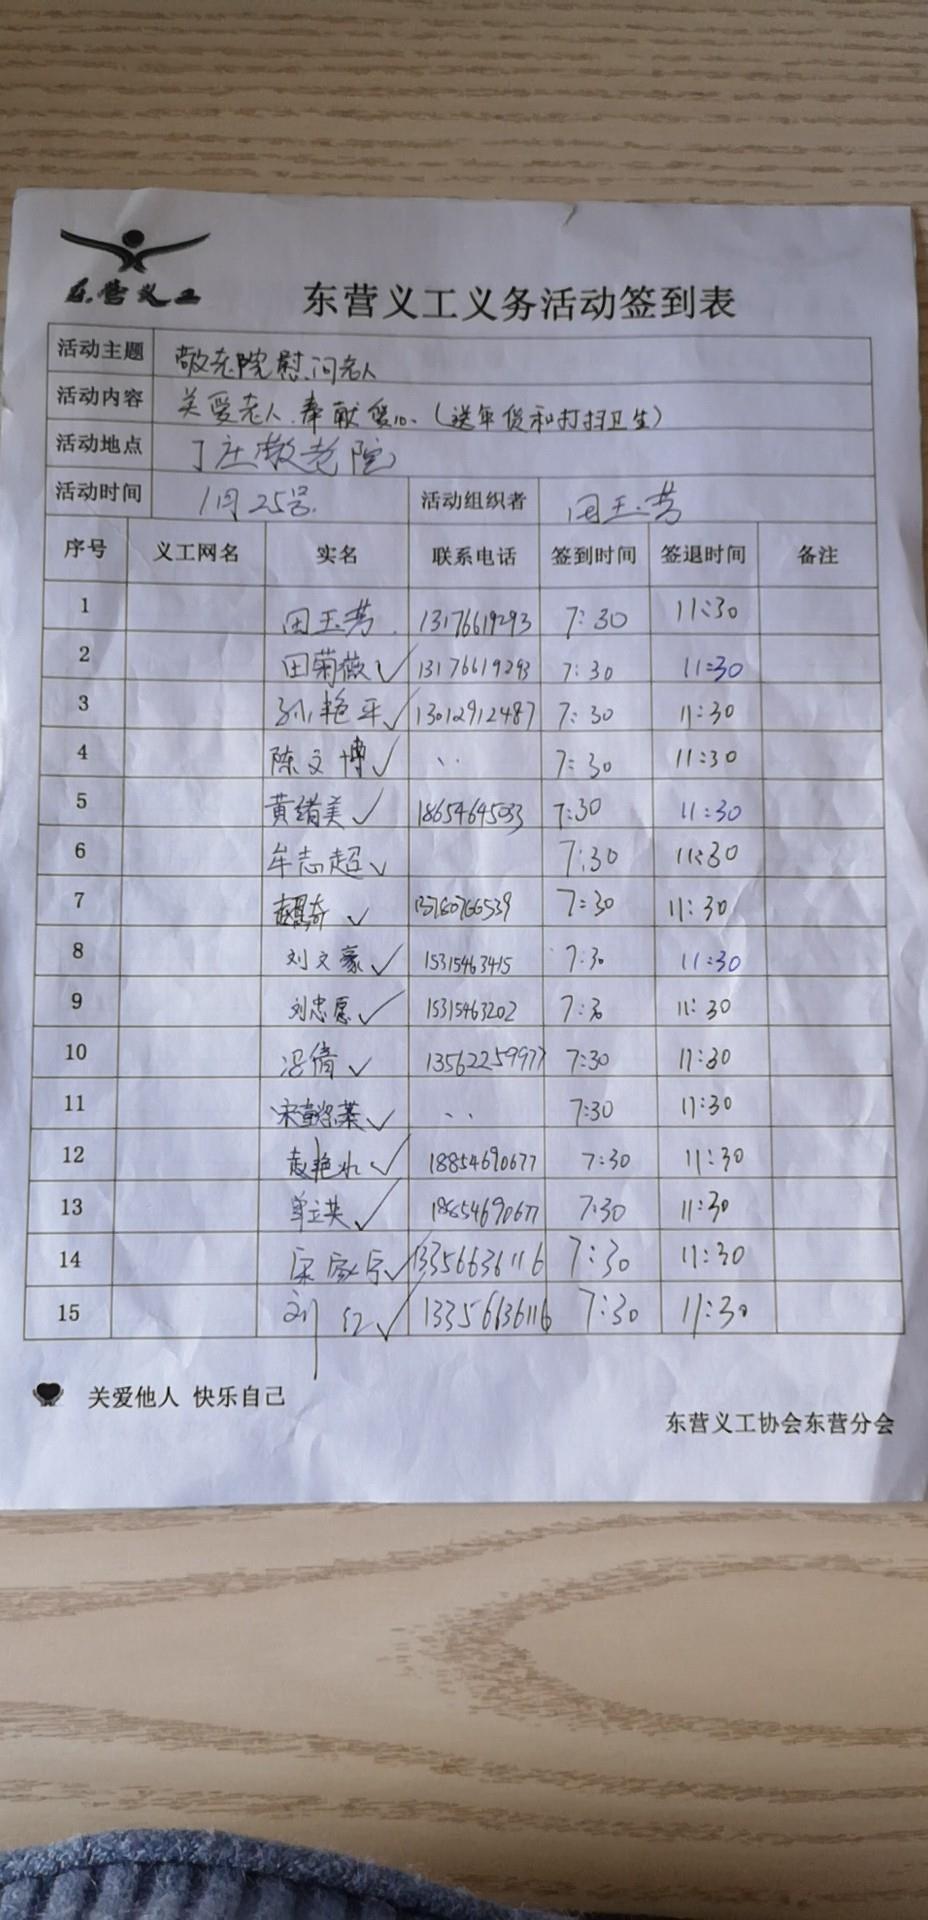 东营义工
东营义工义务活动签到表
活动主题 敬老院慰问老人
活动内容 关爱老人.奉献爱心.(送年货和打扫卫生)
活动地点 丁庄敬老院
活动时间 1月25号. 活动组织者 田玉芳
序号 义工网名 实名 联系电话 签到时间 签退时间 备注
1 田玉芳. 13176619293 7:30 11:30
2 田菊薇✓ 13176619293 7:30 11:30
3 孙艳平✓ 13012912487 7:30 11:30
4 陈文博✓ 、、 7:30 11:30
5 黄绪美✓ 18654645033 7:30 11:30
6 牟志超✓ 7:30 11:30
7 ✓ 13780766539 7:30 11:30
8 刘文豪✓ 15315463415 7:30 11:30
9 刘忠愿✓ 15315463202 7:30 11:30
10 冯倩✓ 13562259977 7:30 11:30
11 ✓ 、、 7:30 11:30
12 赵艳✓ 18854690677 7:30 11:30
13 单立英✓ 18854690677 7:30 11:30
14 ✓ 13356636116 7:30 11:30
15 刘红✓ 13356636116 7:30 11:30
关爱他人 快乐自己
东营义工协会东营分会